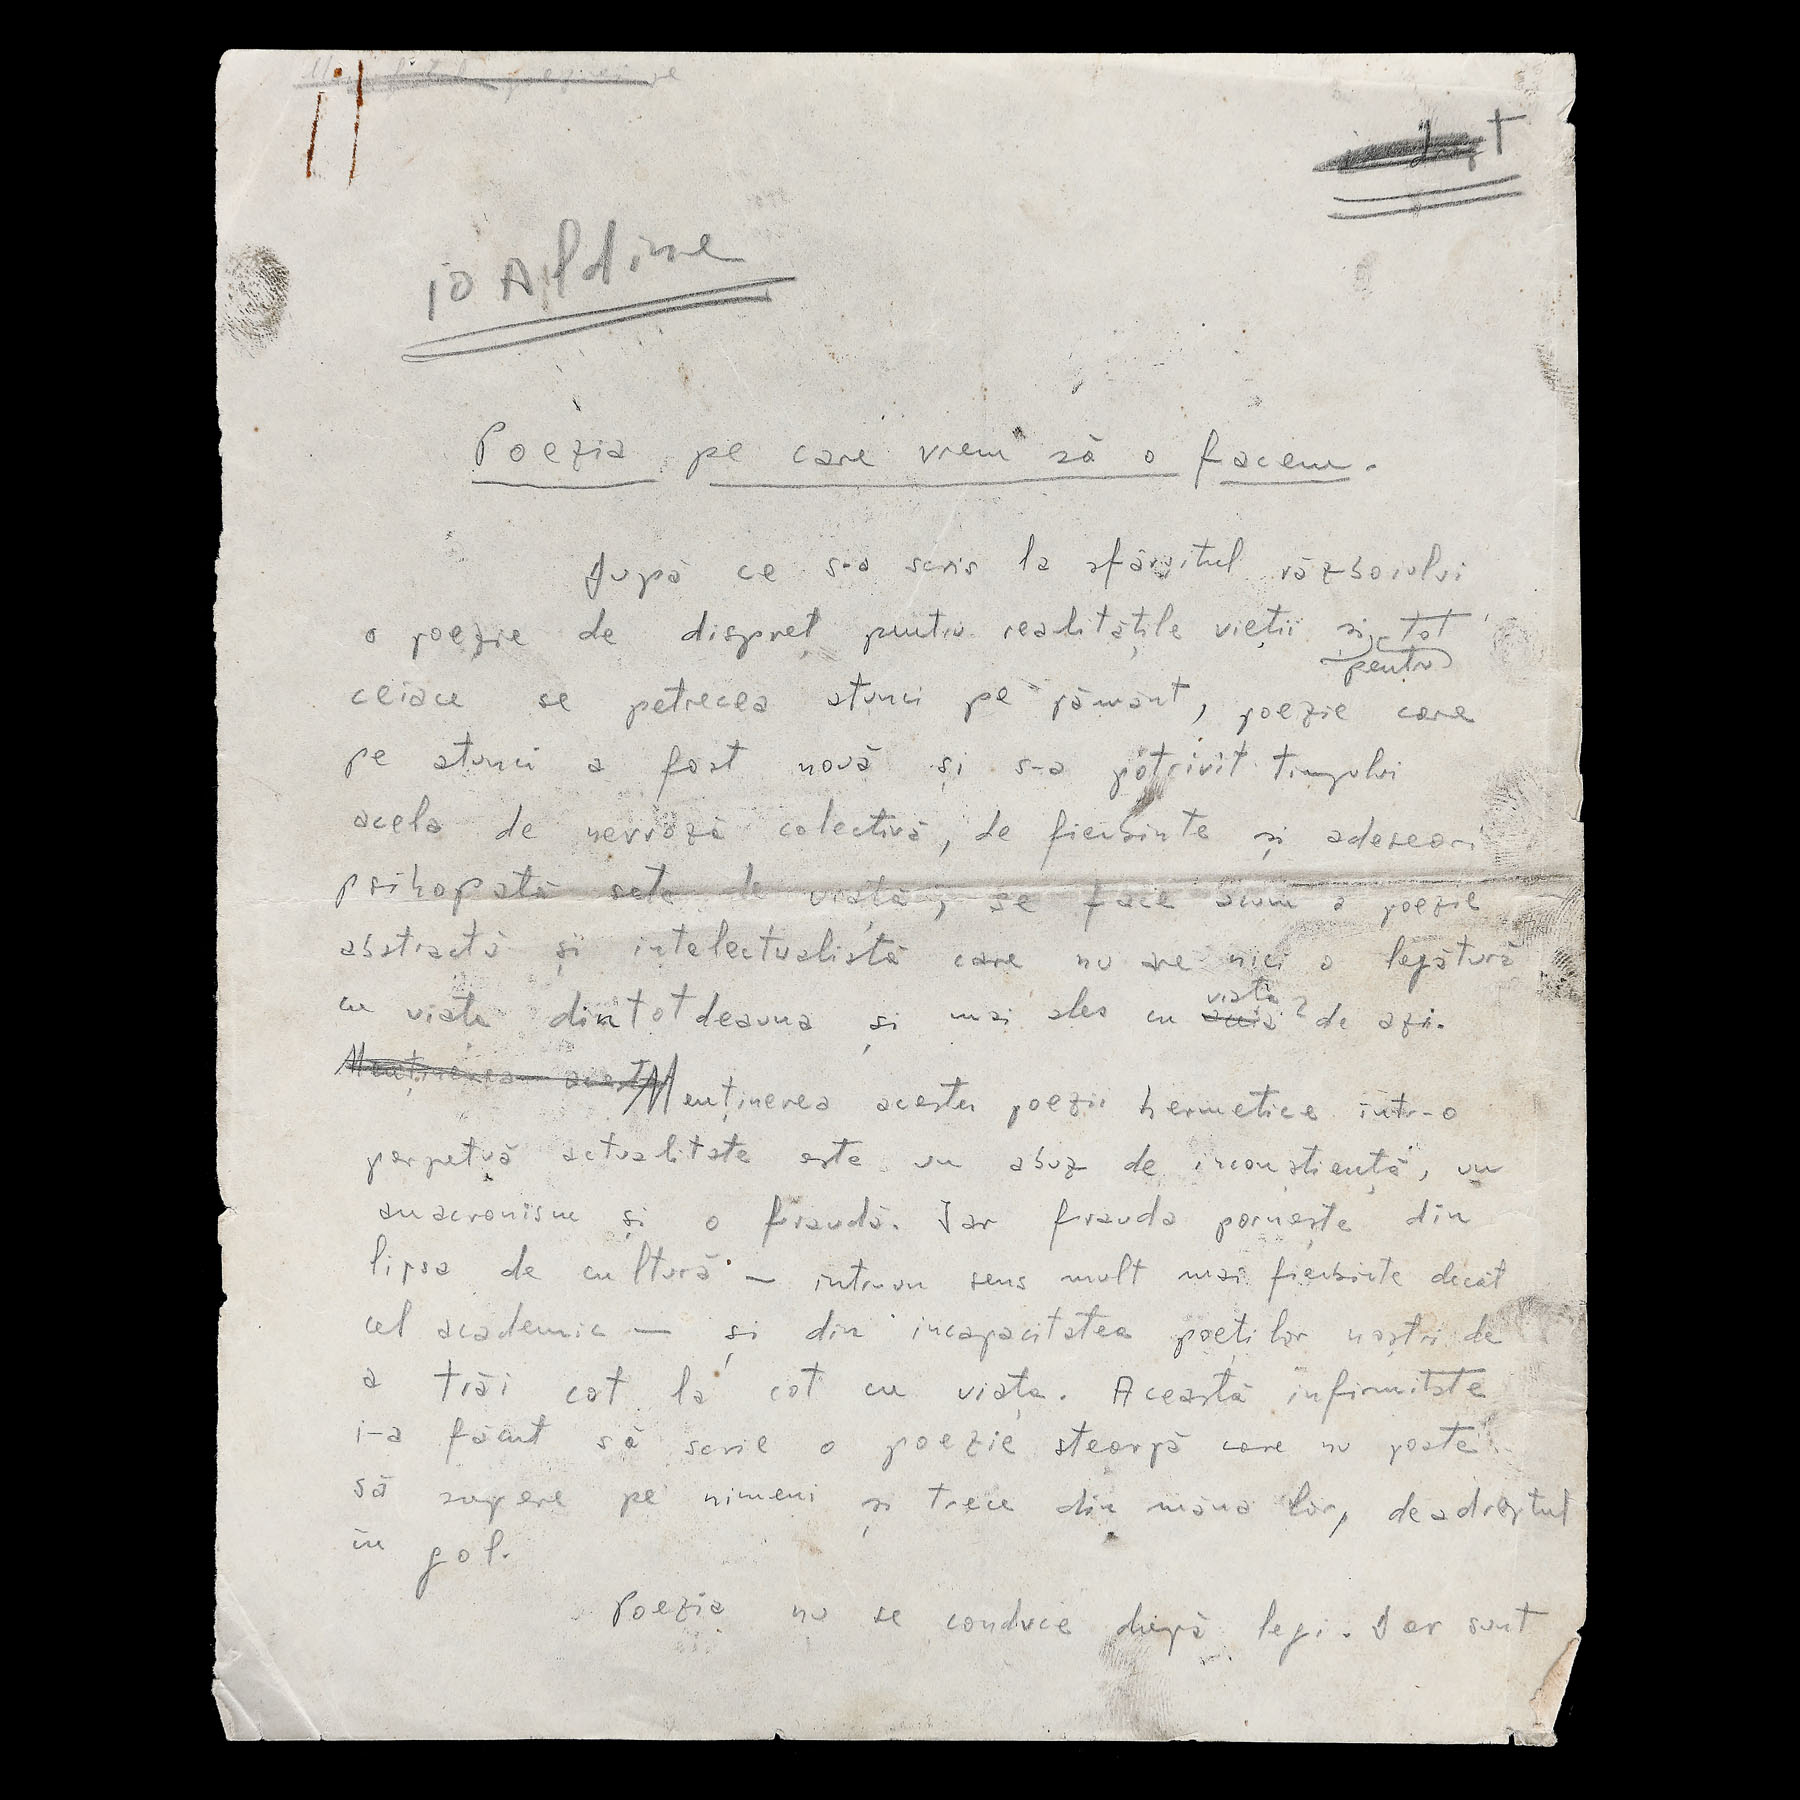 10 Aldine
Poezia pe care vrem să o facem.
După ce s-a scris la sfârșitul războiului
o poezie de dispreț pentru realitățile vieții și pentru tot
ceiace se petrecea atunci pe pământ, poezie care
pe atunci a fost nouă și s-a potrivit timpului
acela de nevroză colectivă, de fierbinte și adeseori
psihopată sete de viață, se face acum o poezie
abstractă și intelectualistă care nu are nici o legătură
cu viața dintotdeauna și mai ales cu viața de azi.
Menținerea acestei
Menținerea acestei poezii hermetice într-o
perpetuă actualitate este un abuz de inconștiență, un
anacronism și o fraudă. Iar frauda pornește din
lipsa de cultură — intrun sens mult mai fierbinte decât
cel academic — și din incapacitatea poeților noștri de
a trăi cot la cot cu viața. Această infirmitate
i-a făcut să scrie o poezie stearpă care nu poate
să supere pe nimeni și trece din mâna lor, deadreptul
în gol.
Poezia nu se conduce după legi. Dar sunt